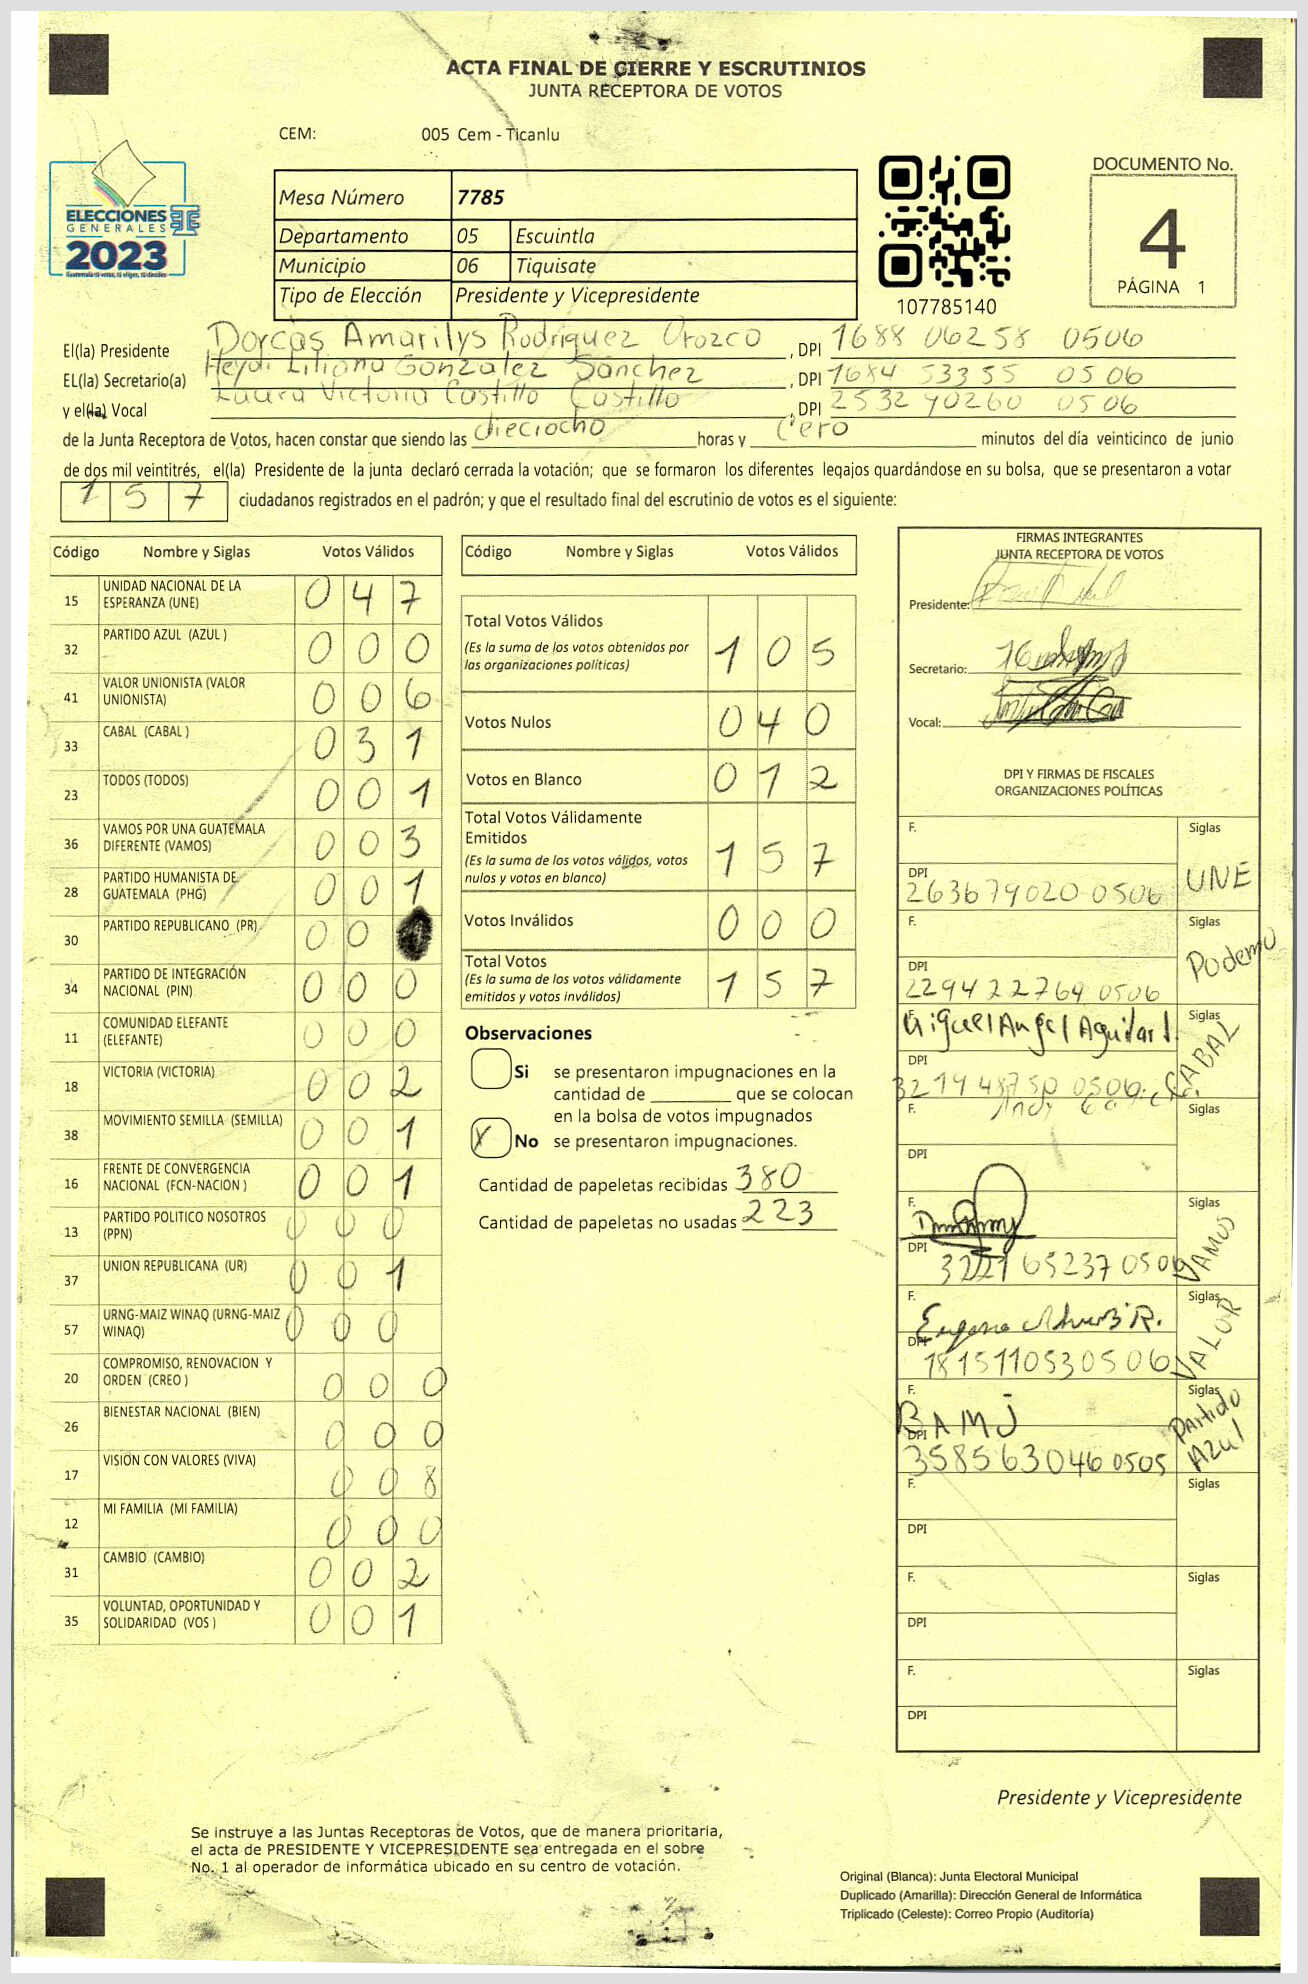 ACTA FINAL DE CIERRE Y ESCRUTINIOS
JUNTA RECEPTORA DE VOTOS
CEM: 005 Cem - Ticanlu
ELECCIONES
GENERALES
2023
Mesa Número 7785
Departamento 05 Escuintla
Municipio 06 Tiquisate
Tipo de Elección Presidente y Vicepresidente
107785140
DOCUMENTO No.
4
PÁGINA 1
El(la) Presidente Dorcas Amarilys Rodriguez Orozco , DPI 1688 06258 0506
EL(la) Secretario(a) Heydi Liliana Gonzalez Sanchez , DPI 1684 53355 0506
y el(la) Vocal Laura Victoria Castillo Castillo , DPI 2532 90260 0506
de la Junta Receptora de Votos, hacen constar que siendo las dieciocho horas y Cero minutos del día veinticinco de junio
de dos mil veintitrés, el(la) Presidente de la junta declaró cerrada la votación; que se formaron los diferentes legajos quardándose en su bolsa, que se presentaron a votar
1 5 7 ciudadanos registrados en el padrón; y que el resultado final del escrutinio de votos es el siguiente:
Código Nombre y Siglas Votos Válidos
15 UNIDAD NACIONAL DE LA ESPERANZA (UNE) 0 4 7
32 PARTIDO AZUL (AZUL ) 0 0 0
41 VALOR UNIONISTA (VALOR UNIONISTA) 0 0 6
33 CABAL (CABAL ) 0 3 1
23 TODOS (TODOS) 0 0 1
36 VAMOS POR UNA GUATEMALA DIFERENTE (VAMOS) 0 0 3
28 PARTIDO HUMANISTA DE GUATEMALA (PHG) 0 0 1
30 PARTIDO REPUBLICANO (PR) 0 0
34 PARTIDO DE INTEGRACIÓN NACIONAL (PIN) 0 0 0
11 COMUNIDAD ELEFANTE (ELEFANTE) 0 0 0
18 VICTORIA (VICTORIA) 0 0 2
38 MOVIMIENTO SEMILLA (SEMILLA) 0 0 1
16 FRENTE DE CONVERGENCIA NACIONAL (FCN-NACION ) 0 0 1
13 PARTIDO POLITICO NOSOTROS (PPN) 0 0 0
37 UNION REPUBLICANA (UR) 0 0 1
57 URNG-MAIZ WINAQ (URNG-MAIZ WINAQ) 0 0 0
20 COMPROMISO, RENOVACION Y ORDEN (CREO ) 0 0 0
26 BIENESTAR NACIONAL (BIEN) 0 0 0
17 VISION CON VALORES (VIVA) 0 0 8
12 MI FAMILIA (MI FAMILIA) 0 0 0
31 CAMBIO (CAMBIO) 0 0 2
35 VOLUNTAD, OPORTUNIDAD Y SOLIDARIDAD (VOS ) 0 0 1
Código Nombre y Siglas Votos Válidos
Total Votos Válidos
(Es la suma de los votos obtenidos por
las organizaciones políticas) 1 0 5
Votos Nulos 0 4 0
Votos en Blanco 0 1 2
Total Votos Válidamente
Emitidos
(Es la suma de los votos válidos, votos
nulos y votos en blanco) 1 5 7
Votos Inválidos 0 0 0
Total Votos
(Es la suma de los votos válidamente
emitidos y votos inválidos) 1 5 7
Observaciones
Si se presentaron impugnaciones en la
cantidad de ________ que se colocan
en la bolsa de votos impugnados
X No se presentaron impugnaciones.
Cantidad de papeletas recibidas 380
Cantidad de papeletas no usadas 223
FIRMAS INTEGRANTES
JUNTA RECEPTORA DE VOTOS
Presidente:
Secretario:
Vocal:
DPI Y FIRMAS DE FISCALES
ORGANIZACIONES POLÍTICAS
F. Siglas
DPI UNE
263679020 0506
F. Siglas
DPI Podemo
229422769 0506
F. Miguel Angel Aguilar Siglas
DPI CABAL
321948750 0506
F. Siglas
DPI
F. Siglas
DPI VAMOS
322165237 0506
F. Siglas
DPI VALOR
1815110530506
F. BAMJ Siglas
DPI Partido Azul
358563046 0505
F. Siglas
DPI
F. Siglas
DPI
F. Siglas
DPI
Presidente y Vicepresidente
Se instruye a las Juntas Receptoras de Votos, que de manera prioritaria,
el acta de PRESIDENTE Y VICEPRESIDENTE sea entregada en el sobre
No. 1 al operador de informática ubicado en su centro de votación.
Original (Blanca): Junta Electoral Municipal
Duplicado (Amarilla): Dirección General de Informática
Triplicado (Celeste): Correo Propio (Auditoría)